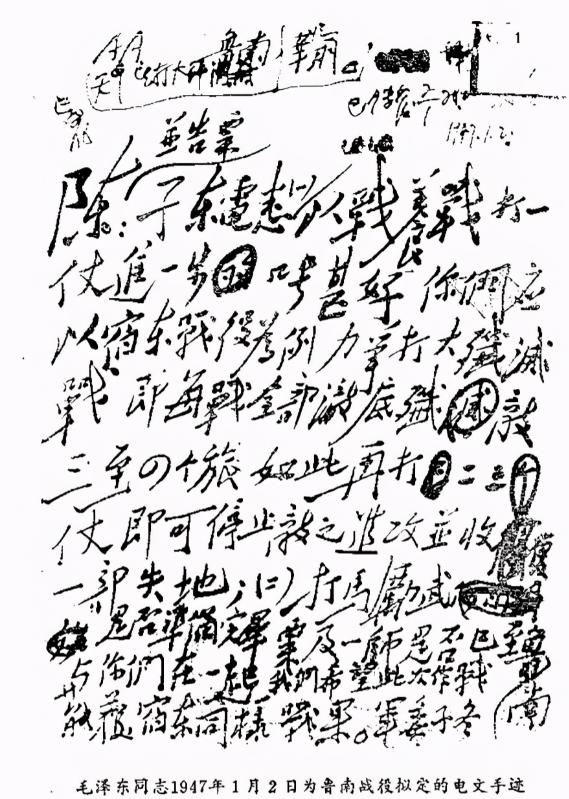 1947.1.2.
並告粟
陈：子东電悉 以戰養戰 打一
仗進一步的口号甚好 你們应
以宿东戰役為例 力争打大殲滅
戰 即每戰全部澈底殲 敵
三至四个旅 如此再打二三个
仗 即可停止敵之進攻並收復
一部失地；（二）打馬勵武
是否準備完畢 粟及一師是否已至魯南
与你們在一起 我們希望此次作戰
能獲宿东同樣戰果。軍委子冬
毛泽东同志1947年1月2日为鲁南战役拟定的电文手迹